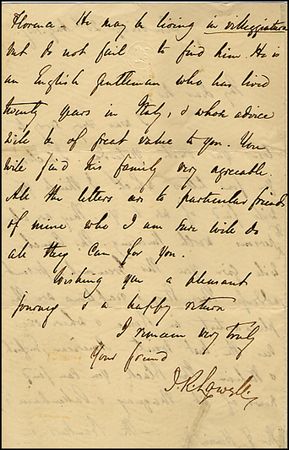 Florence. He may be living in villeggiatura
but do not fail to find him. He is
an English gentleman who has lived
twenty years in Italy, & whose advice
will be of great value to you. You
will find his family very agreeable.
All the letters are to particular friends
of mine who I am sure will do
all they can for you.
Wishing you a pleasant
journey & a happy return
I remain very truly
Your friend
J. R. Lowell